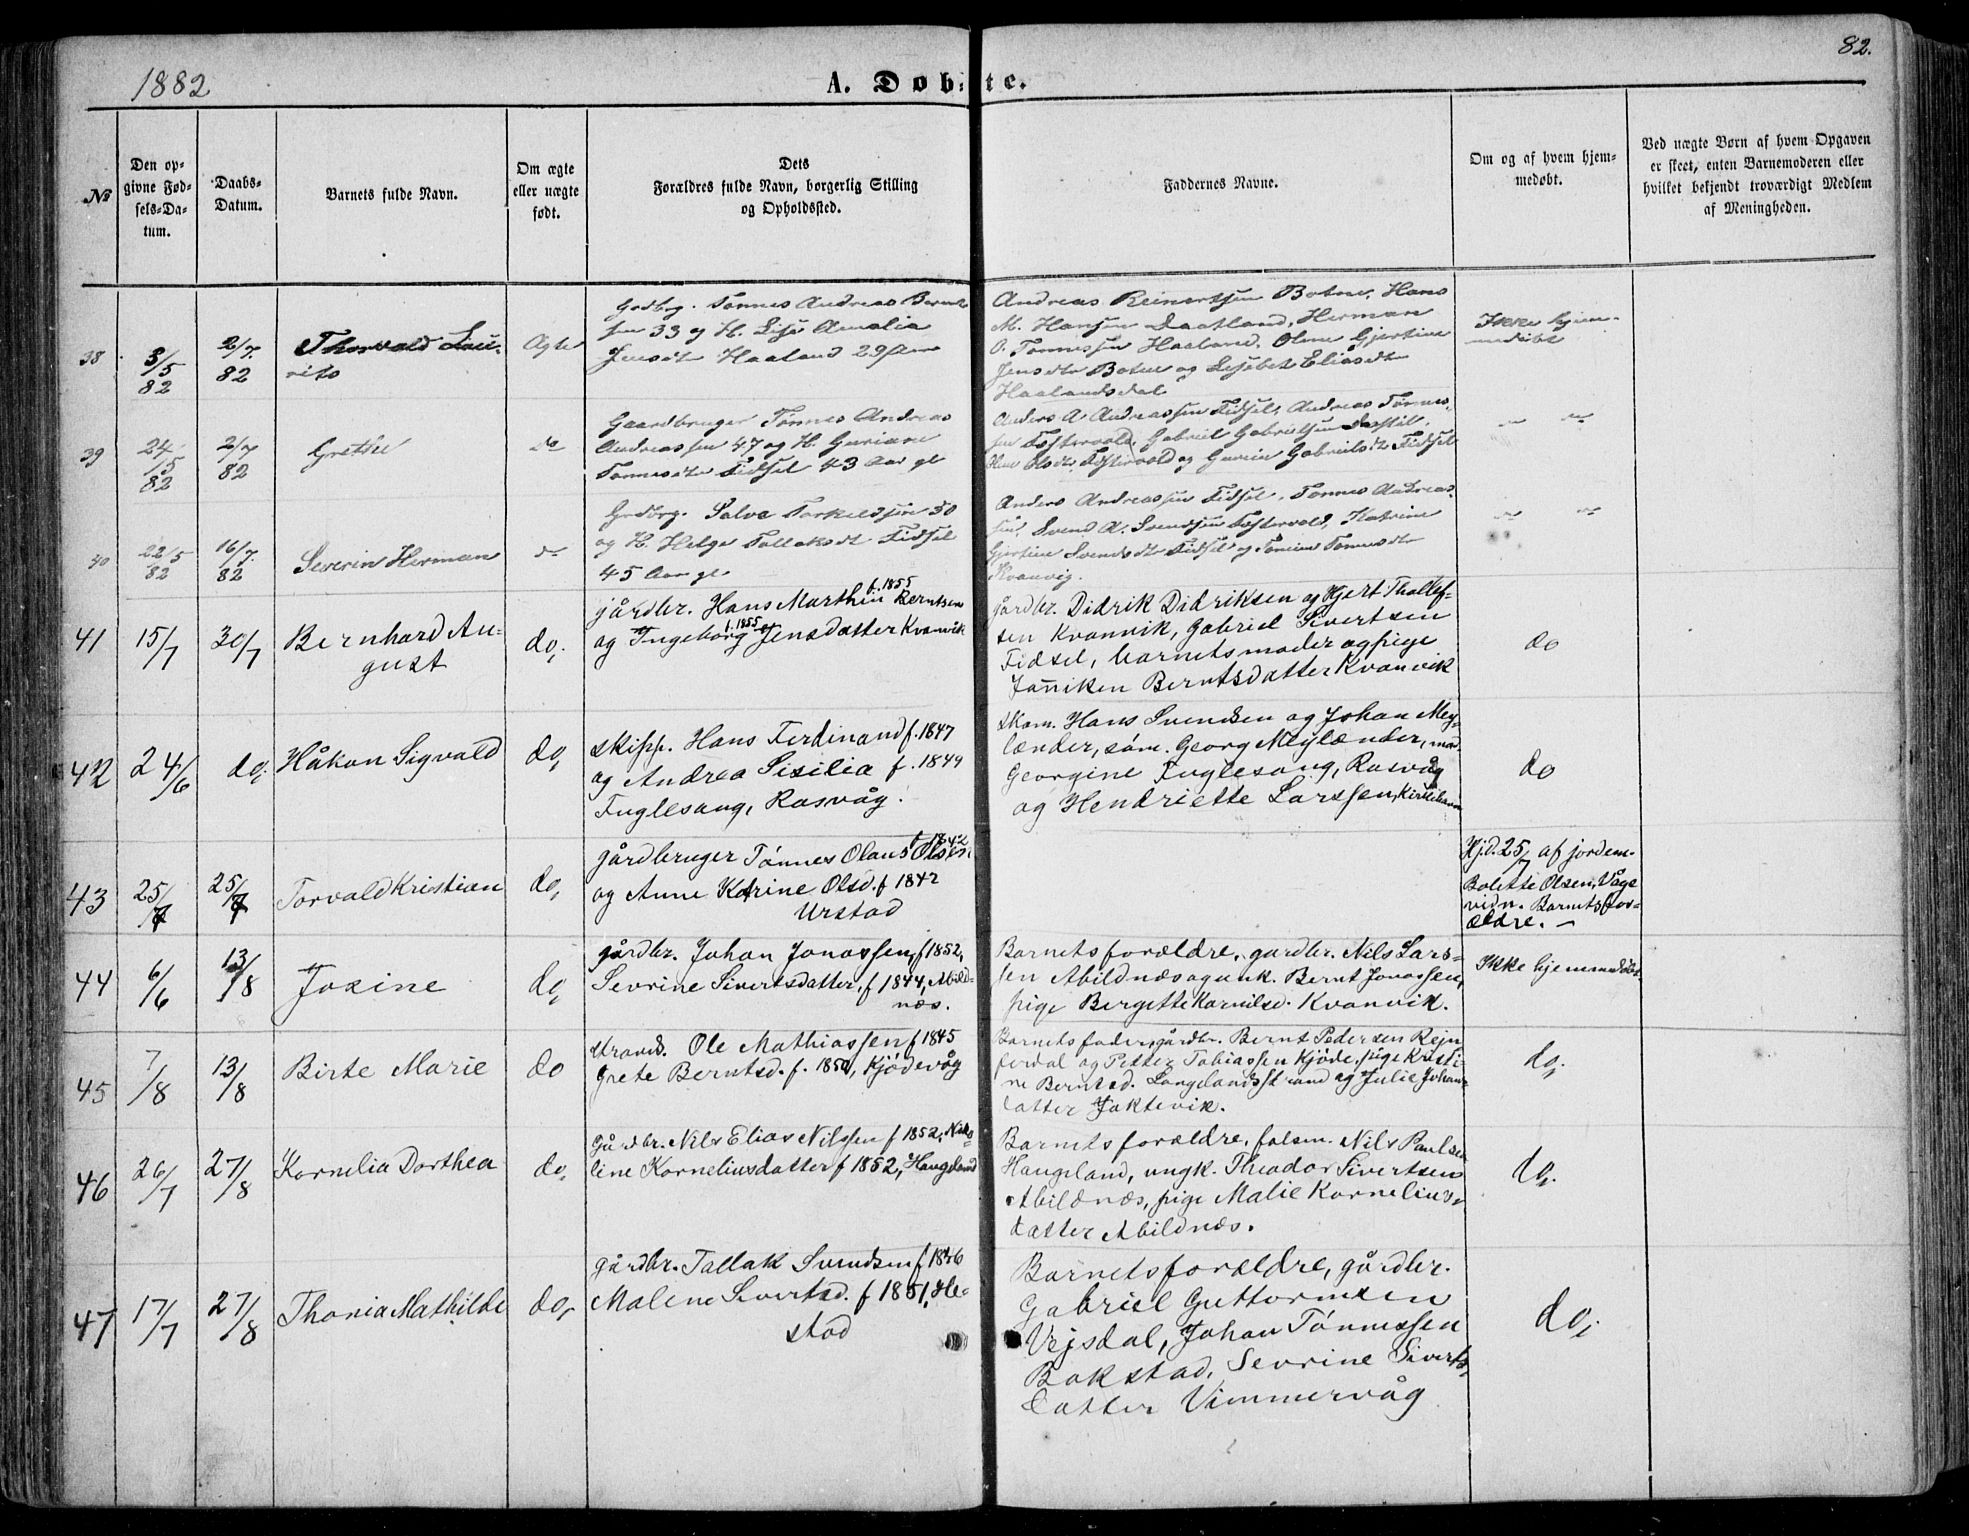 82.
1882
A. Døbte.
№
Den op-
givne Fød-
sels-Da-
tum.
Daabs-
Datum.
Barnets fulde Navn.
Om ægte
eller uægte
født.
Dets
Forældres fulde Navn, borgerlig Stilling
og Opholdssted.
Faddernes Navne.
Om og af hvem hjem-
medøbt.
Ved uægte Børn af hvem Opgaven
er skeet, enten Barnemoderen eller
hvilket bekjendt troværdigt Medlem
af Menigheden.
38
3/5
82
2/7.
82
Thorvald Lau-
rits
Ægte
Grdbrg. Tønnes Andreas Bernt-
sen 33 og H. Lise Amalia
Jensdt Haaland 29 Aar
Andreas Reinertsen Botne, Hans
M. Hansen Daatland, Herman
O. Tønnessen Haaland, Olene Gjertine
Jensdtr Botne og Lisebet Eliasdtr
Haalandsdal
Ikke hjem-
medøbt
39
24/5
82
2/7
82
Grethe
do
Gaardbruger Tønnes Andreas
Andreassen 47 og H. Guriane
Tønnesdtr Fidsel 43 Aar gl
Anders A Andreassen Fidsel, Andreas Tønnes-
sen Fostervold, Gabriel Gabrielsen
Olsdtr Fostervold og Gabrielsdtr Fidsel
40
22/5
82
16/7.
82
Severin Herman
do
Grdbrg. Salve Torkildsen 50
og H. Helge Tollaksdt Fidsel
45 Aar gl.
Anders Andreassen Fidsel, Tønnes Andreas-
sen, Svend A. Svendsen Fostervold, Katrine
Gjertine Svendsdtr Fidsel og Tønnesdtr
Kvanvig.
41
15/7
30/7
Bernhard Au-
gust
do.
gårdbr. Hans Marthin f. 1855 Berntsen
og Ingeborg f. 1855 Jensdatter Kvanvik
gårdbr. Didrik Didriksen og Gjert Thollef-
sen Kvanvik, Gabriel Sivertsen
Fidsel, barnets moder og pige
Janniken Berntsdatter Kvanvik
do
42
24/6
do.
Håkon Sigvald
do,
skipp. Hans Ferdinand f. 1847
og Andrea Sisilia f. 1849
Fuglesang, Rasvåg.
skom. Hans Svendsen og Johan Mey-
lænder, søm. Georg Meylænder, mad.
Georgine Fuglesang, Rasvåg
og Hendriette Larssen, Kirkehavn
do
43
25/7
25/7
Torvald Kristian
do,
gårdbruger Tønnes Olaus Olsen f 1842
og Anne Katrine Olsd. f 1842
Urstad
Hjd. 25/7 af jordem.
Bolette Olsen, Våge
vidn. Barnets for-
ældre. —
44
6/6
13/8
Josine
do,
gårdbr. Johan Jonassen, f 1852,
Sevrine Sivertsdatter, f 1844, Abild-
næs.
Barnets forældre, gardbr. Nils Lars-
sen Abildnæs og unk. Bernt Jonassen,
pige Bergitte Karnilsd. Kvanvik.
Ikke hjemmedøbt
45
7/8
13/8
Birte Marie
do
Strands. Ole Mathiassen f 1845
Grete Berntsd. f. 1850, Kjødevåg
Barnets fader, gårdbr. Bernt Pedersen Rejn
ferdal og Petter Tobiassen Kjøde, pige Kristi-
ne Berntsd. Langelandsstrand og Julie Johans-
datter Jaktevik.
do,
46
26/7
27/8
Kornelia Dorthea
do,
Gårdbr. Nils Elias Nilssen f 1852, Niko-
line Korneliusdatter f 1852, Haugeland
Barnets forældre, folsm. Nils Paulsen
Haugeland, ungk. Theodor Sivertsen
Abildnæs, pige Malie Kornelius-
datter Abildnæs.
do,
47
17/7
27/8
Thonia Mathilde
do,
gårdbr. Tallak Svendsen f 1846
Malene Sivertsd. f 1851, He-
stad
Barnets forældre, gårdbr.
Gabriel Guttormsen
Vejsdal, Johan Tønnessen
Bakstad, Sevrine Siverts-
datter Vimmervåg
do,